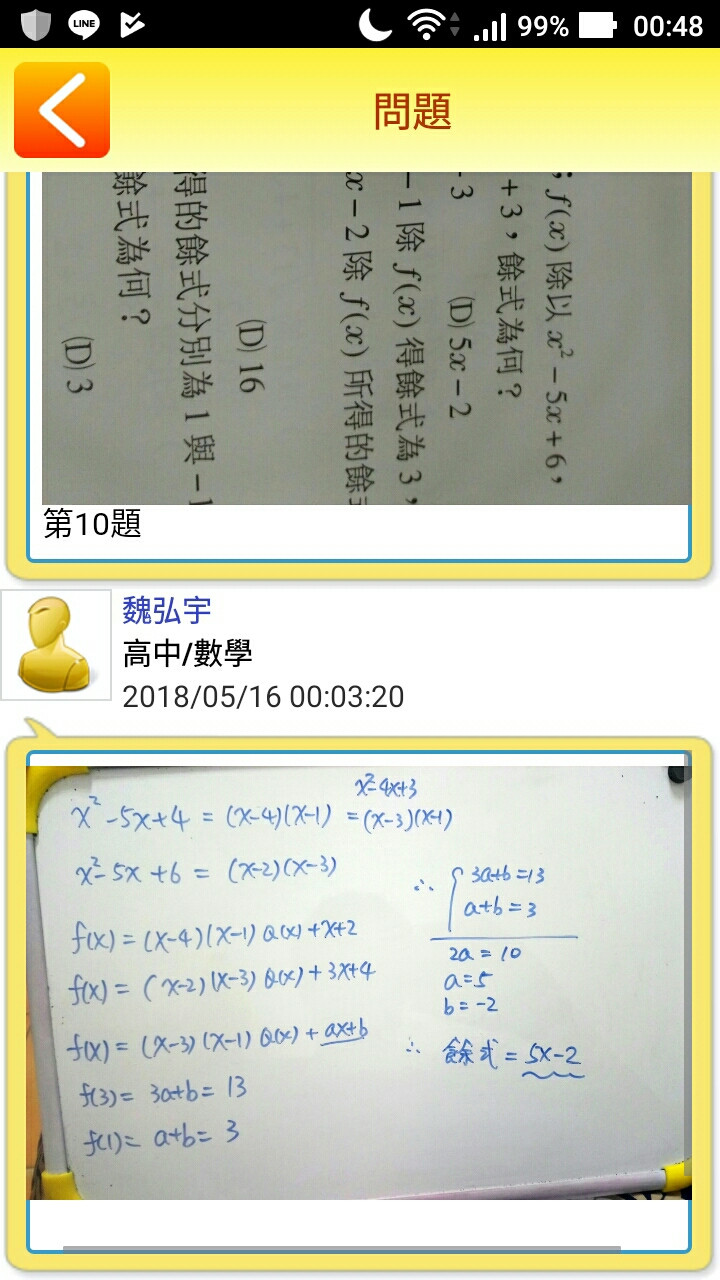 LINE
99%
00:48
問題
; f(x) 除以 x² − 5x + 6,
+ 3,餘式為何?
3 (D) 5x − 2
− 1 除 f(x) 得餘式為 3,
x − 2 除 f(x) 所得的餘
(D) 16
得的餘式分別為 1 與 −1
餘式為何?
(D) 3
第10題
魏弘宇
高中/數學
2018/05/16 00:03:20
x²-4x+3
x²-5x+4 = (x-4)(x-1) = (x-3)(x-1)
x²-5x+6 = (x-2)(x-3)
f(x) = (x-4)(x-1) Q(x) + x+2
f(x) = (x-2)(x-3) Q(x) + 3x+4
f(x) = (x-3)(x-1) Q(x) + ax+b
f(3) = 3a+b = 13
f(1) = a+b = 3
∴ 3a+b = 13
a+b = 3
2a = 10
a=5
b=-2
∴ 餘式 = 5x-2